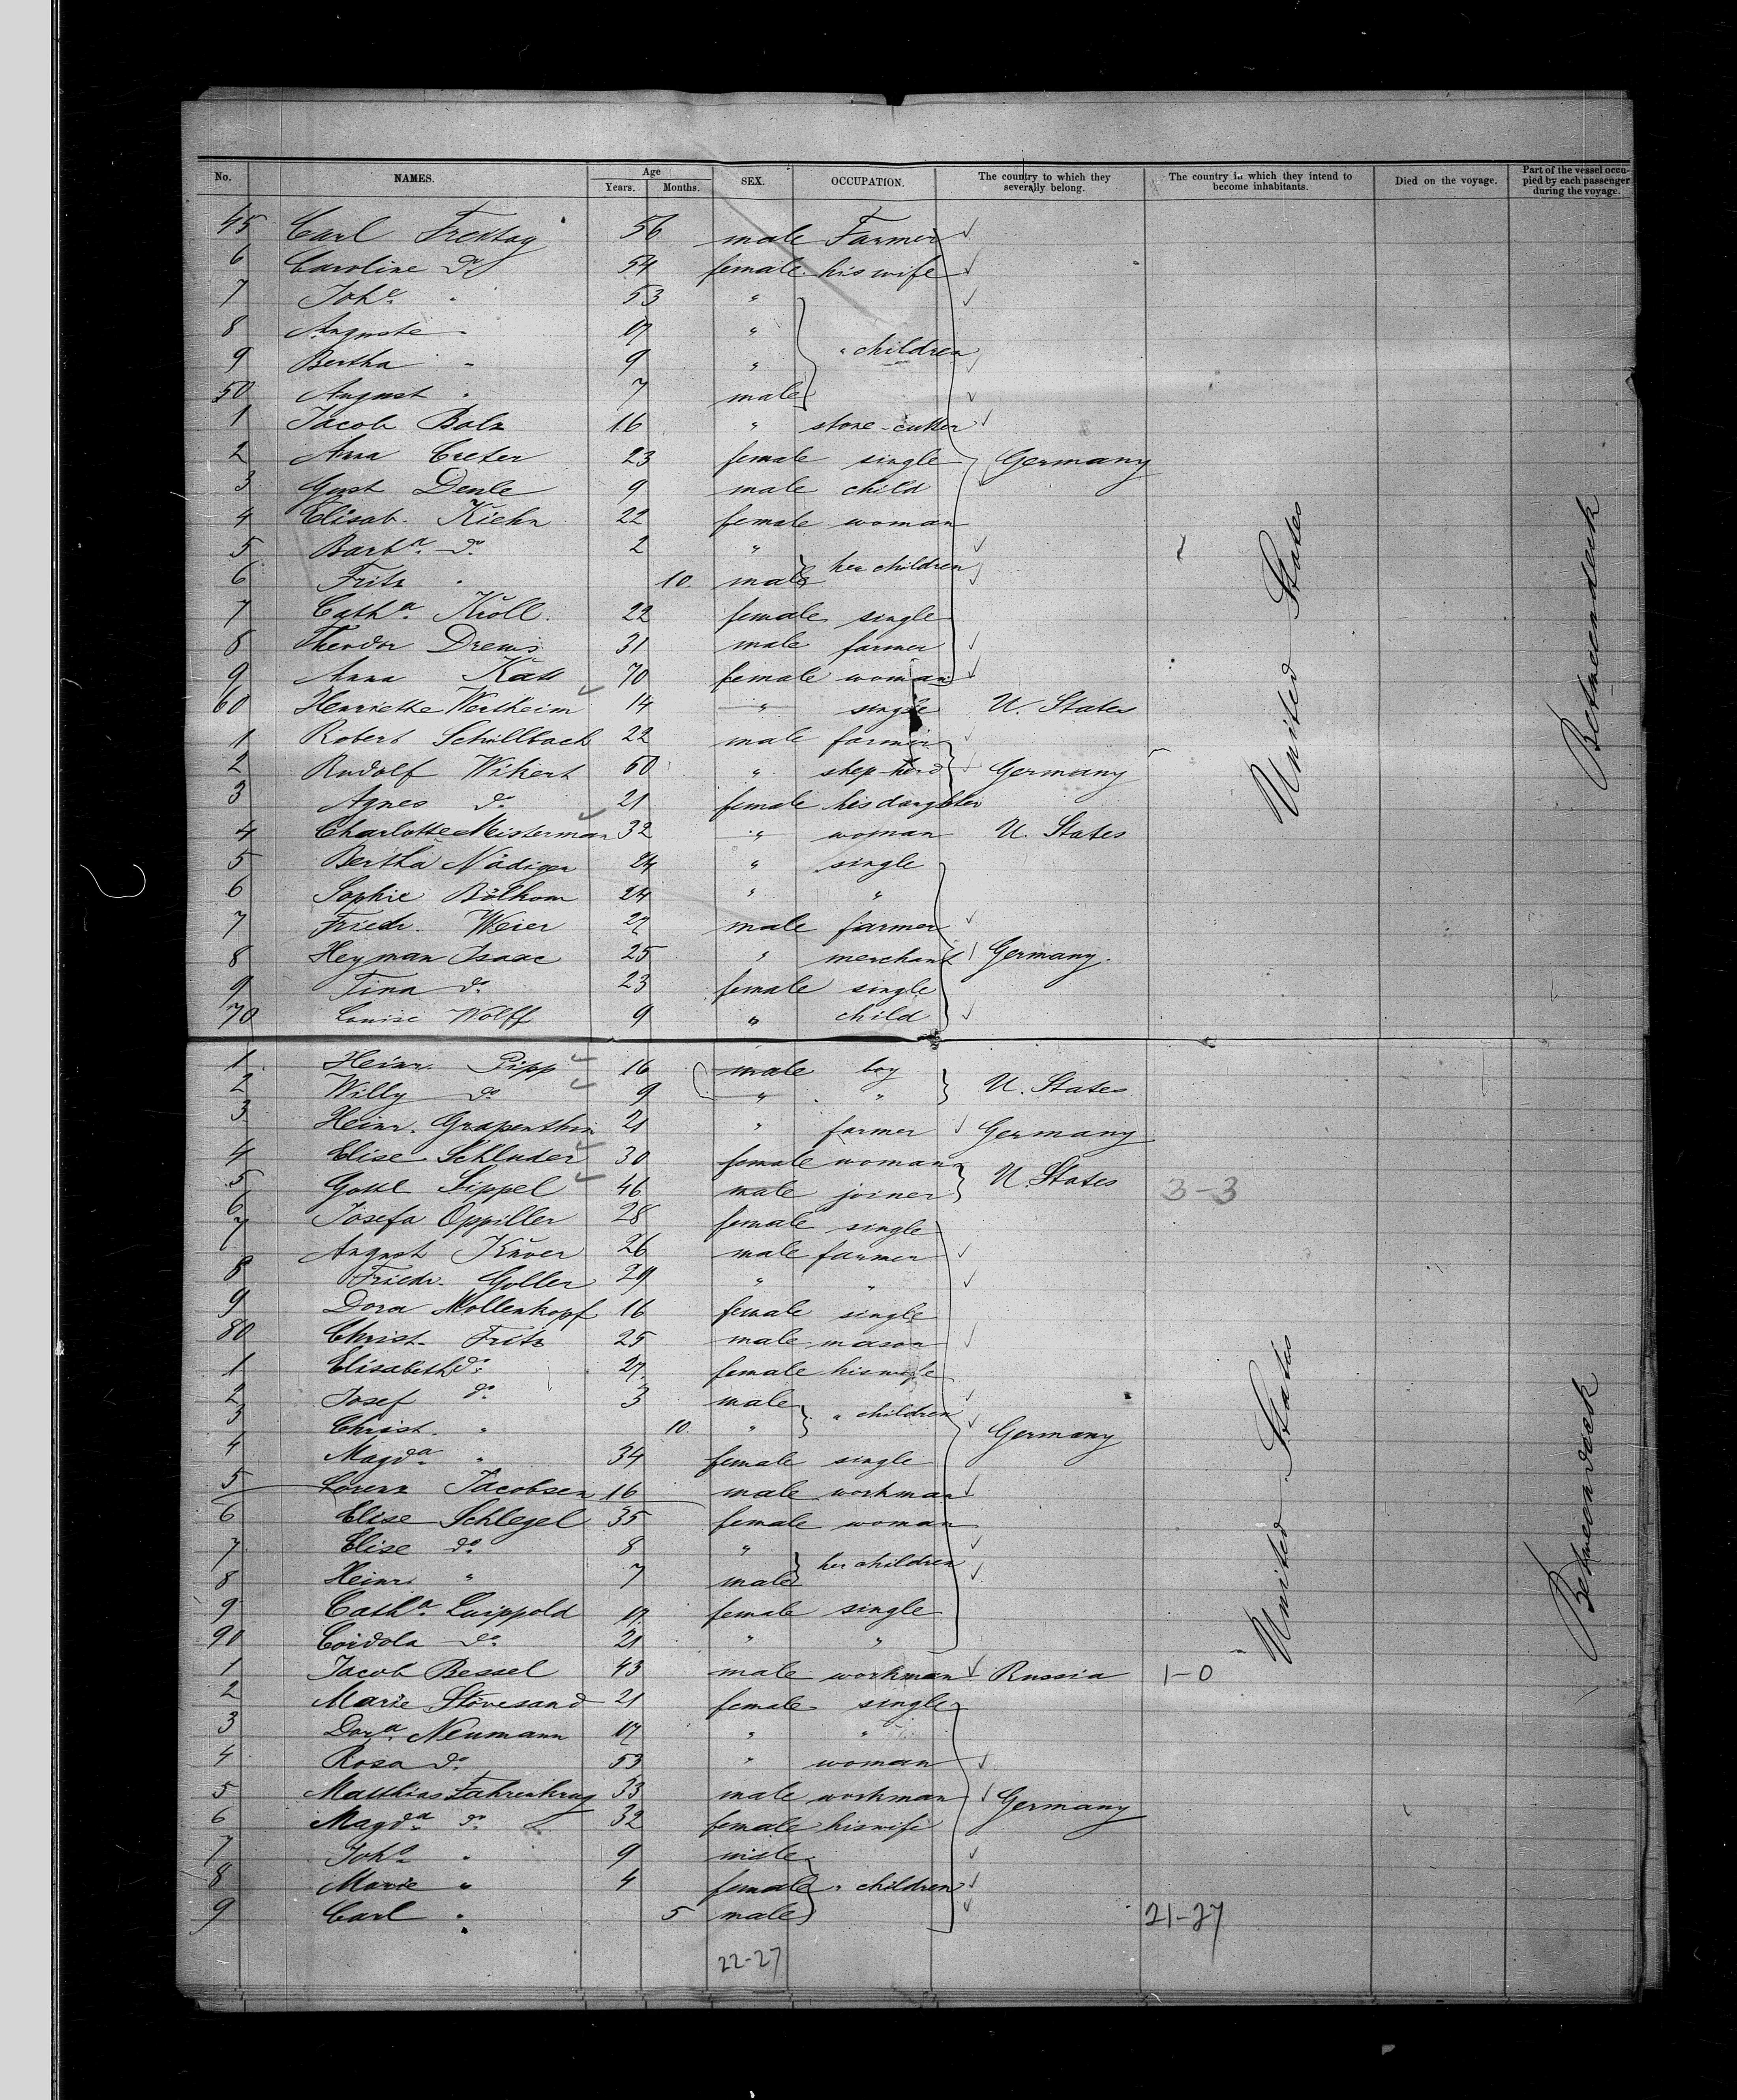 No. NAMES. Age Years. Months. SEX. OCCUPATION. The country to which they severally belong. The country in which they intend to become inhabitants. Died on the voyage. Part of the vessel occupied by each passenger during the voyage.
45 Carl Freitag 56 male Farmer
6 Caroline do 54 female his wife
7 Johe " 53 "
8 Auguste " 17 "
9 Bertha " 9 " " children
50 August " 7 male
1 Jacob Bolz 16 " stone-cutter
2 Anna Creter 23 female single Germany
3 Gust Denle 9 male child
4 Elisab. Kiehn 22 female woman
5 Barba do 2 "
6 Fritz " 10 male her children
7 Catha Kroll 22 female single
8 Theodor Drews 31 male farmer
9 Anna Katt 70 female woman
60 Henriette Wertheim 14 " single U. States
1 Robert Schüllbach 22 male farmer
2 Rudolf Wikert 60 " shep-herd Germany
3 Agnes do 21 female his daughter
4 Charlotte Meisterman 32 " woman U. States
5 Bertha Nädiger 24 " single
6 Sophie Bölkom 24 " "
7 Friedr. Weier 27 male farmer
8 Heyman Isaac 25 " merchant Germany.
9 Tina do 23 female single
70 Louise Wolff 9 " child
1 Heinr. Pipp 16 male boy
2 Willy do 9 " " U. States
3 Heinr. Grapenthin 21 " farmer Germany
4 Elise Schluder 30 female woman
5 Gottl Sippel 46 male joiner U. States 3-3
6 Josefa Oppiller 28 female single
7 August Knver 26 male farmer
8 Friedr. Goller 29 " "
9 Dora Mollenkopf 16 female single
80 Christ. Fritz 25 male mason
1 Elisabeth do 27 female his wife
2 Josef do 3 male
3 Christ. " 10 " " children Germany
4 Magda " 34 female single
5 Lorenz Jacobsen 16 male workman
6 Elise Schlegel 35 female woman
7 Elise do 8 "
8 Heinr " 7 male her children
9 Catha Luippold 17 female single
90 Cordola do 21 " "
1 Jacob Bessel 43 male workman Russia 1-0
2 Marie Stövesand 21 female single
3 Dora Neumann 17 " "
4 Rosa do 53 " woman
5 Matthias Fahrenkrug 33 male workman Germany
6 Magda do 32 female his wife
7 Joh " 9 male
8 Marie " 4 female " children
9 Carl " 5 male 21-27
22-27
United States
United States
Betweendeck
Betweendeck